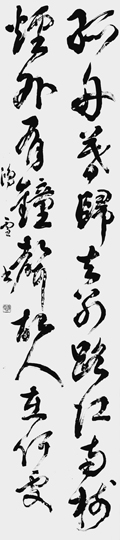 孤舟暮歸去別路江南樹
煙外有鐘聲故人在何處